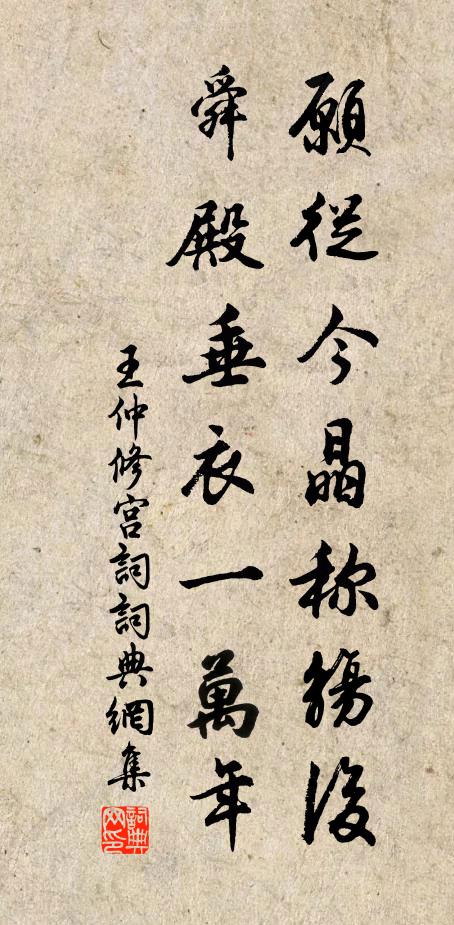 願從今晶称觴後
舜殿垂衣一萬年
王仲修宮詞詞典網集
詞典網印